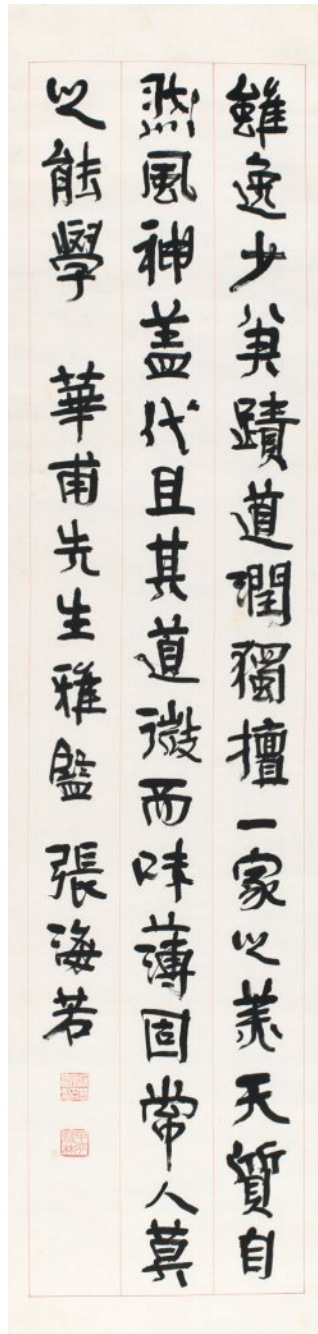 雖逸少蹟遒潤獨擅一家之美天質自
然風神蓋代且其道微而味薄固常人莫
之能學　華甫先生雅鑒　張海若